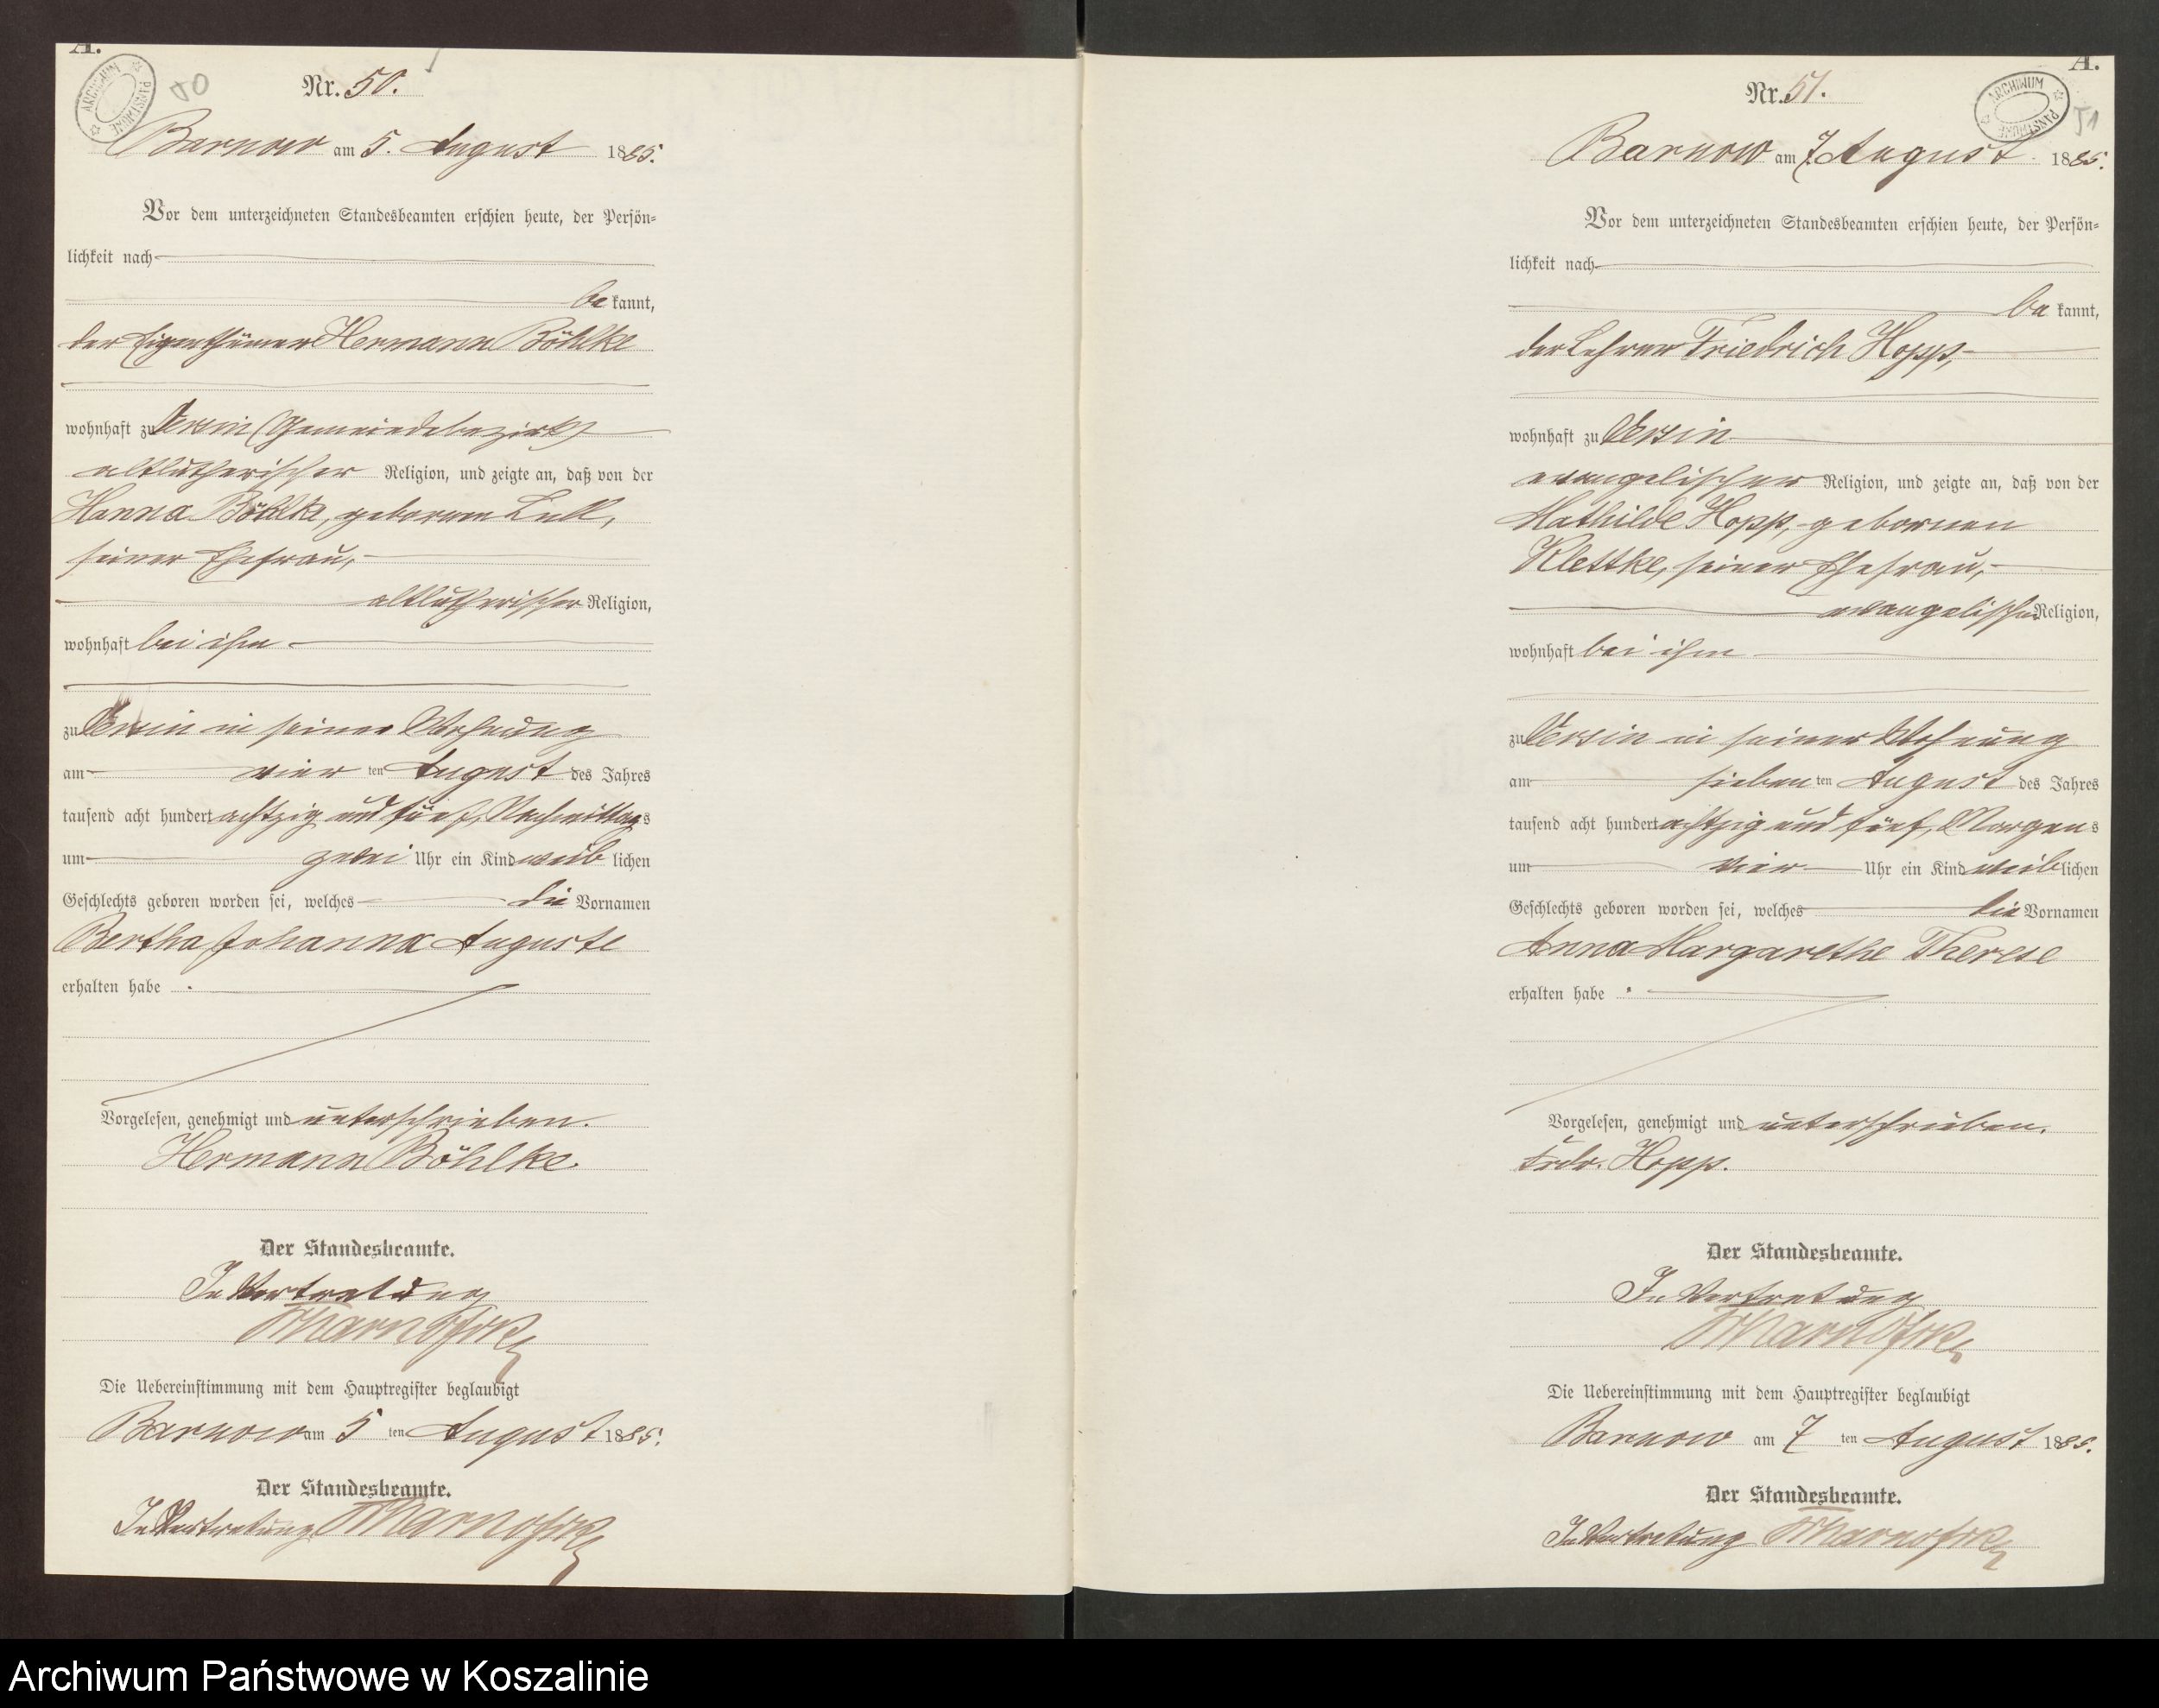 A.
ARCHIWUM PAŃSTWOWE
50
Nr. 50.
Barnow am 5. August 1885.
Vor dem unterzeichneten Standesbeamten erschien heute, der Persön-
lichkeit nach
be kannt,
der Eigenthümer Hermann Böhlke
wohnhaft zu Versin (Gemeindebezirk)
altlutherischer Religion, und zeigte an, daß von der
Hanna Böhlke, geborenen
seiner Ehefrau,
altlutherischer Religion,
wohnhaft bei ihm
zu Versin in seiner Wohnung
am vier ten August des Jahres
tausend acht hundert achtzig und fünf, Nachmittags
um zwei Uhr ein Kind weib lichen
Geschlechts geboren worden sei, welches die Vornamen
Bertha Johanna Auguste
erhalten habe .
Vorgelesen, genehmigt und unterschrieben.
Hermann Böhlke
Der Standesbeamte.
In Vertretung
Die Uebereinstimmung mit dem Hauptregister beglaubigt
Barnow am 5 ten August 1885.
Der Standesbeamte.
In Vertretung
A.
ARCHIWUM PAŃSTWOWE
51
Nr. 51.
Barnow am 7. August 1885.
Vor dem unterzeichneten Standesbeamten erschien heute, der Persön-
lichkeit nach
be kannt,
der Lehrer Friedrich Hopp,
wohnhaft zu Versin
evangelischer Religion, und zeigte an, daß von der
Mathilde Hopp, gebornen
Klettke, seiner Ehefrau,
evangelischer Religion,
wohnhaft bei ihm
zu Versin in seiner Wohnung
am sieben ten August des Jahres
tausend acht hundert achtzig und fünf, Morgens
um vier Uhr ein Kind weib lichen
Geschlechts geboren worden sei, welches die Vornamen
Anna Margarethe Therese
erhalten habe .
Vorgelesen, genehmigt und unterschrieben.
Frdr. Hopp.
Der Standesbeamte.
In Vertretung
Die Uebereinstimmung mit dem Hauptregister beglaubigt
Barnow am 7 ten August 1885.
Der Standesbeamte.
In Vertretung
Archiwum Państwowe w Koszalinie